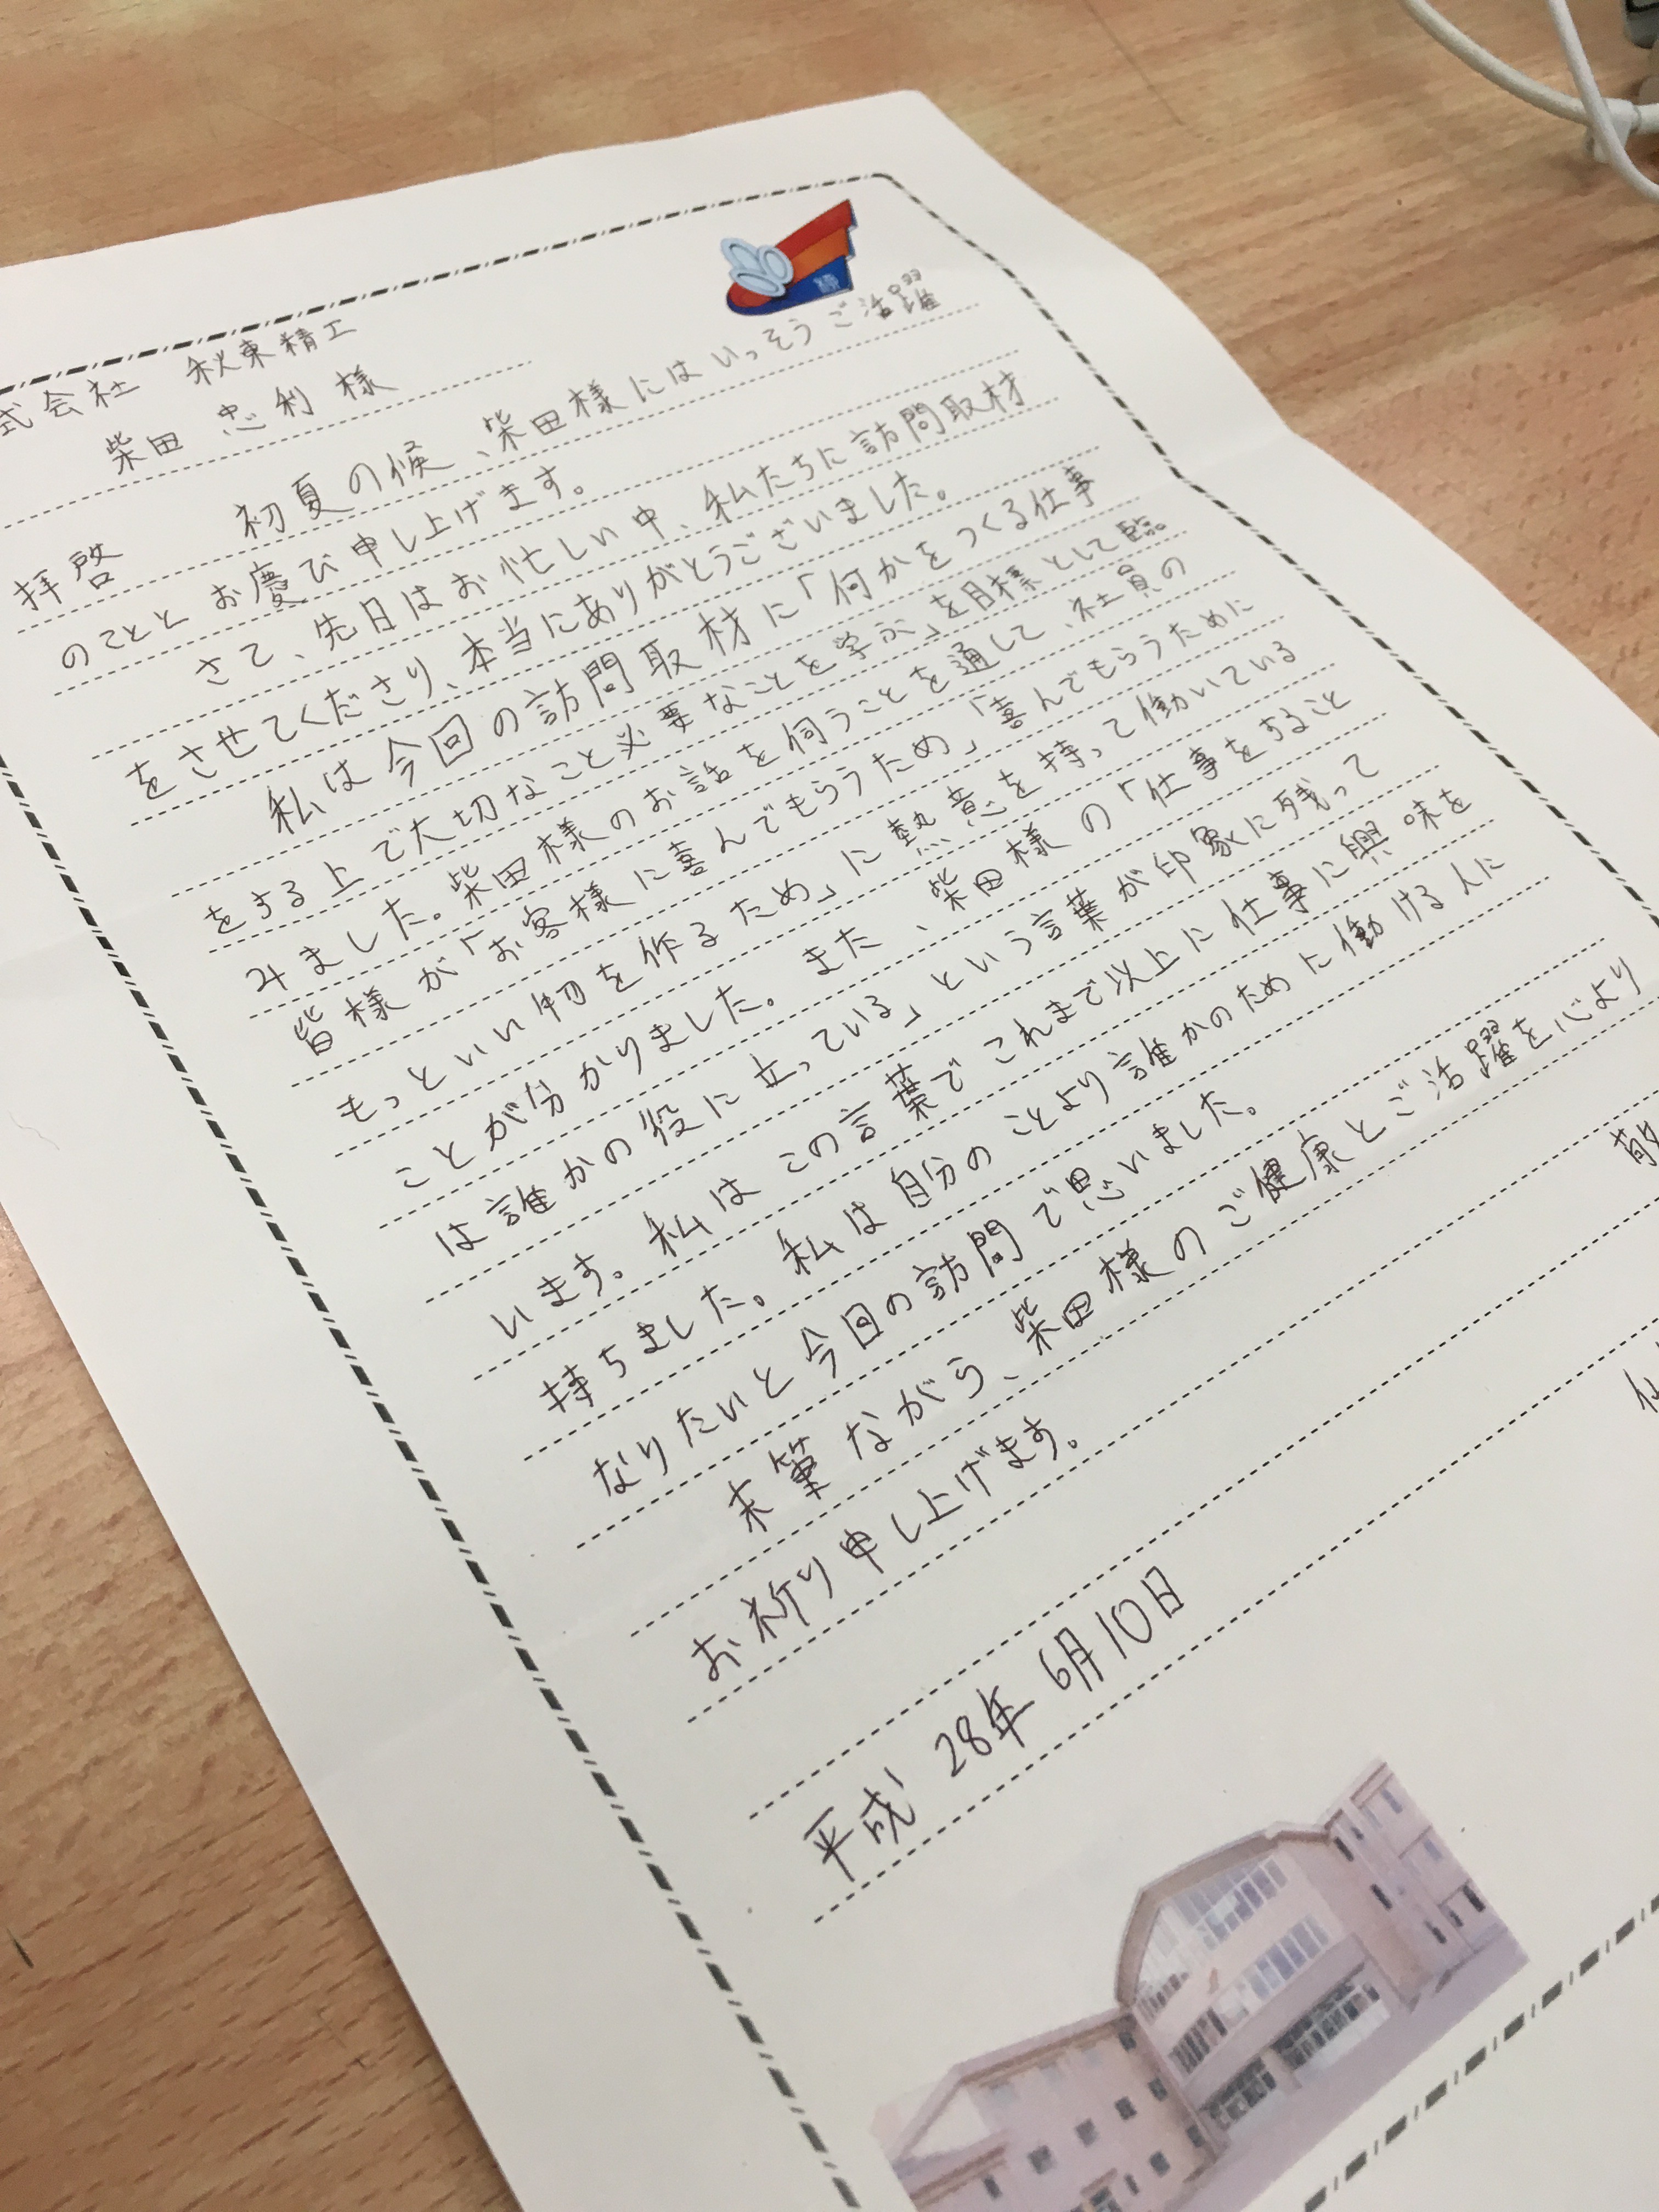 式会社 秋東精工
柴田 忠利 様
拝啓 初夏の候、柴田様にはいっそうご活躍
のことと お慶び申し上げます。
さて、先日はお忙しい中、私たちに訪問取材
をさせてくださり、本当にありがとうございました。
私は今回の訪問取材に「何かをつくる仕事
をする上で大切なこと必要なことを学ぶ」を目標として臨
みました。柴田様のお話を伺うことを通して、社員の
皆様が「お客様に喜んでもらうため」「喜んでもらうために
もっといい物を作るため」に熱意を持って働いている
ことが分かりました。また、柴田様の「仕事をすること
は誰かの役に立っている」という言葉が印象に残って
います。私はこの言葉でこれまで以上に仕事に興味を
持ちました。私は自分のことより誰かのために働ける人に
なりたいと今回の訪問で思いました。
末筆ながら、柴田様のご健康とご活躍を心より
お祈り申し上げます。
平成 28年 6月10日